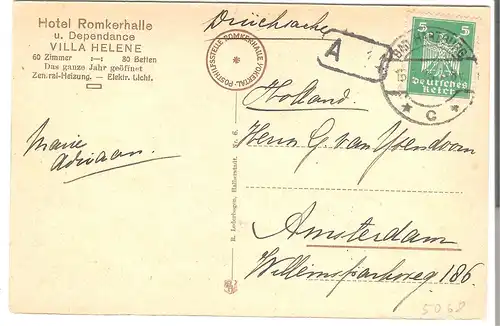 Hotel Romkerhalle
u. Dependance
VILLA HELENE
60 Zimmer 80 Betten
Das ganze Jahr geöffnet
Zentral-Heizung. — Elektr. Licht.
Marie
Adriaan.
Drucksache
POSTHILFSSTELLE ROMKERHALLE (OKERTAL)
A
5 5
Deutsches
Reich
* C *
Holland.
Herrn G. van Ysendoorn.
Amsterdam
Willemsparkweg 186.
R. Lederbogen, Halberstadt. Nr. 6.
5068